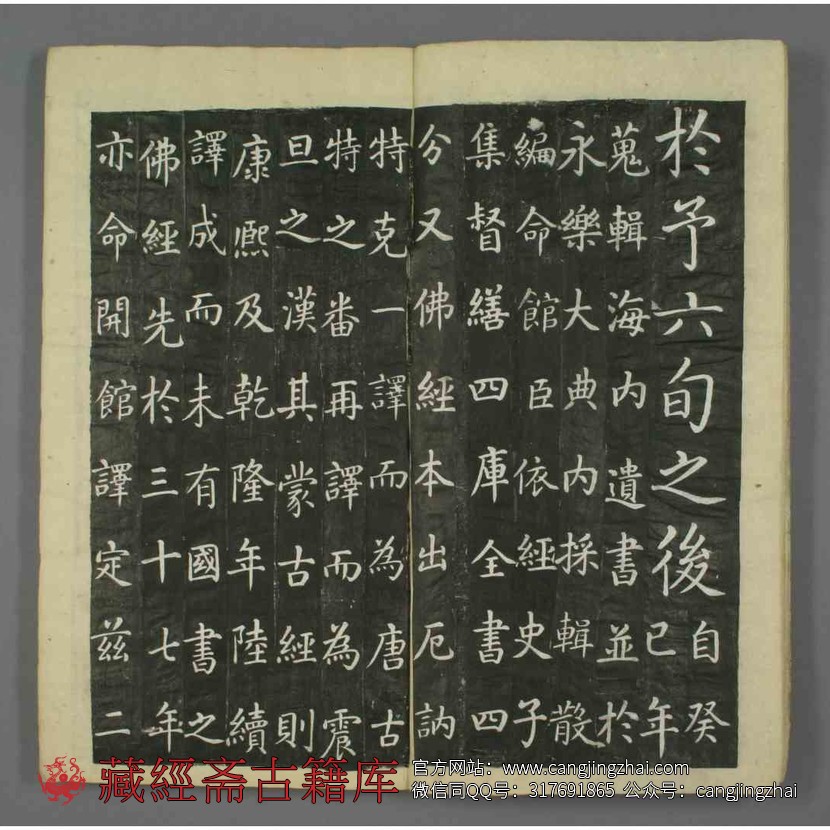 於予六旬之後自癸
已年
蒐輯海內遺書並於
永樂大典內採輯散
編命館臣依經史子
集督繕四庫全書四
分又佛經本出厄訥
特克一譯而為唐古
特之番再譯而為震
旦之漢其蒙古經則
康熙及乾隆年陸續
譯成而未有國書之
佛經先於三十七年
亦命開館譯定茲二
藏經斋古籍库
官方网站：www.cangjingzhai.com
微信同QQ号：317691865 公众号：cangjingzhai